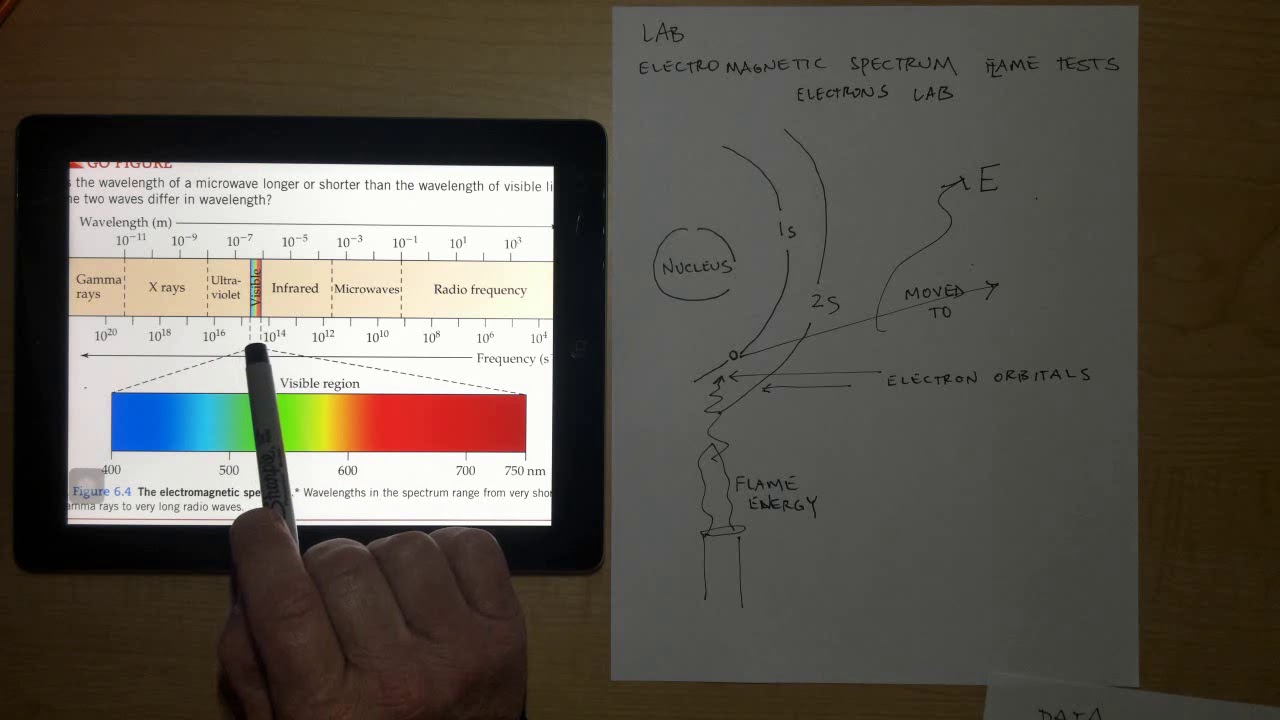 GO FIGURE
the wavelength of a microwave longer or shorter than the wavelength of visible li
e two waves differ in wavelength?
Wavelength (m)
10⁻¹¹ 10⁻⁹ 10⁻⁷ 10⁻⁵ 10⁻³ 10⁻¹ 10¹ 10³
Gamma rays X rays Ultra-violet Visible Infrared Microwaves Radio frequency
10²⁰ 10¹⁸ 10¹⁶ 10¹⁴ 10¹² 10¹⁰ 10⁸ 10⁶ 10⁴
Frequency (s
Visible region
400 500 600 700 750 nm
Figure 6.4 The electromagnetic spe .* Wavelengths in the spectrum range from very shor
amma rays to very long radio waves.
Sharpie
LAB
ELECTROMAGNETIC SPECTRUM FLAME TESTS
ELECTRONS LAB
E
1s
NUCLEUS
2s
MOVED
TO
ELECTRON ORBITALS
FLAME
ENERGY
DATA